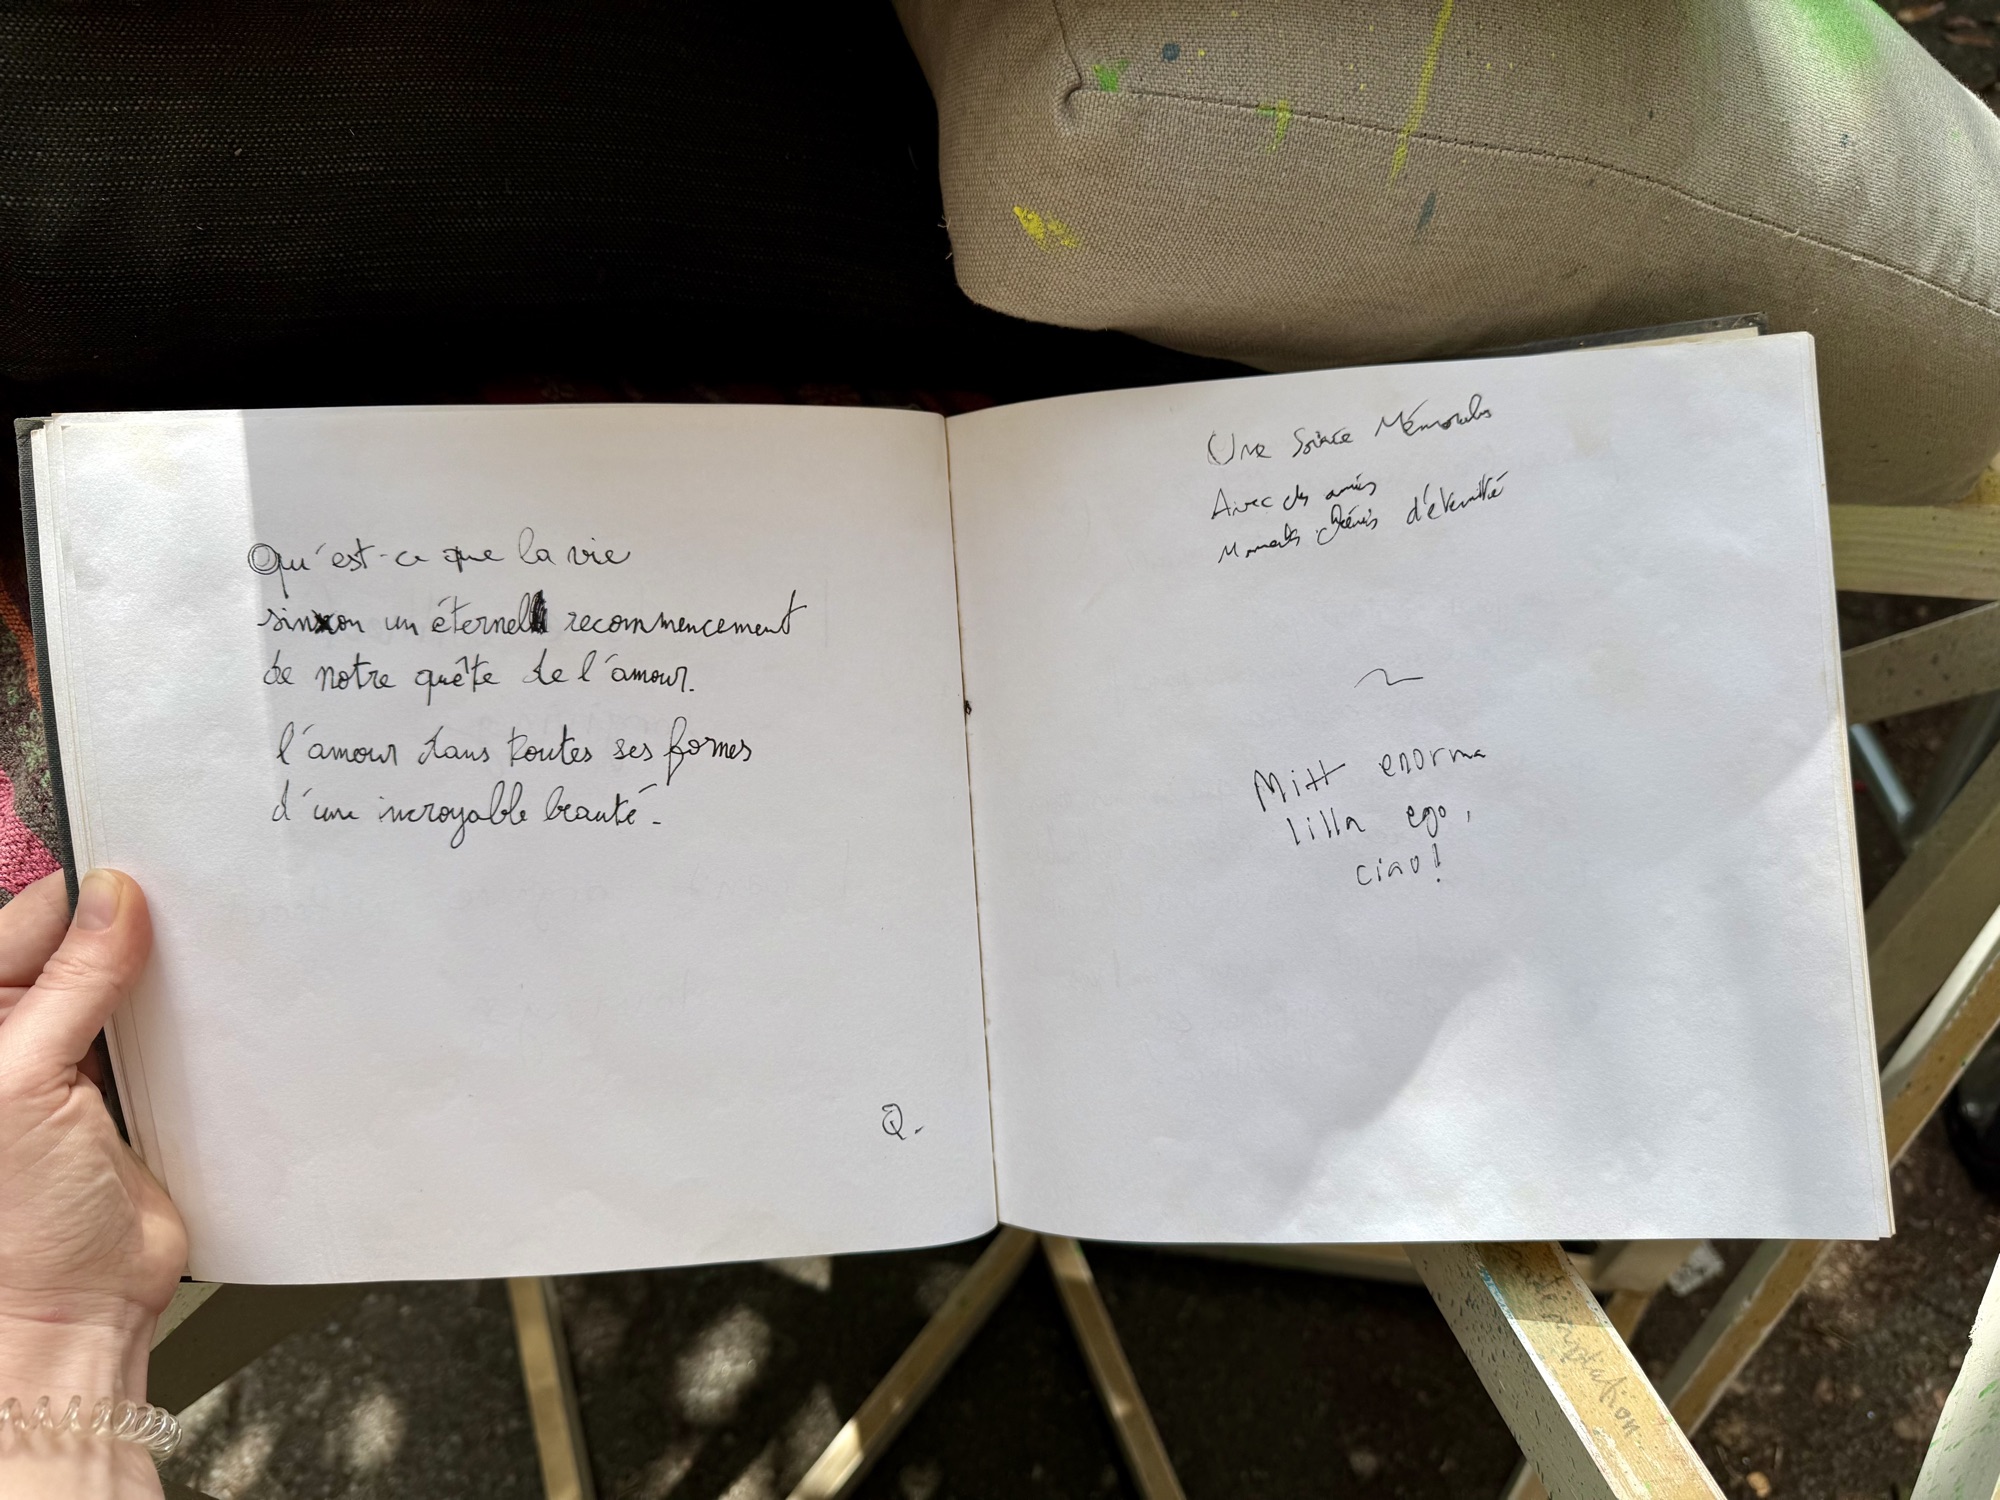 Qu'est-ce que la vie
sinon un éternel recommencement
de notre quête de l'amour.
l'amour dans toutes ses formes
d'une incroyable beauté.
Q.
Une Soirée Mémorable
Avec des amis
Moments chéris d'éternité
Mitt enorma
lilla ego,
ciao!